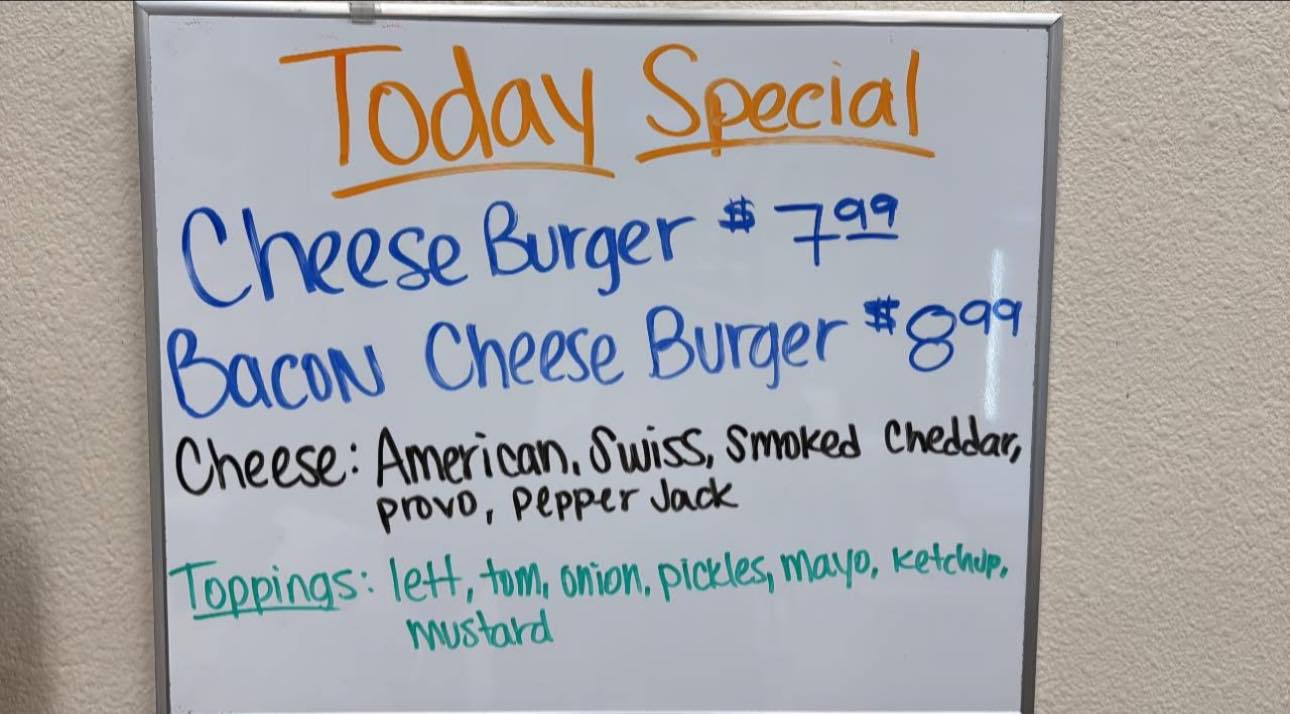 Today Special
Cheese Burger $7.99
Bacon Cheese Burger $8.99
Cheese: American, Swiss, Smoked Cheddar,
provo, pepper Jack
Toppings: lett, tom, onion, pickles, mayo, ketchup,
mustard